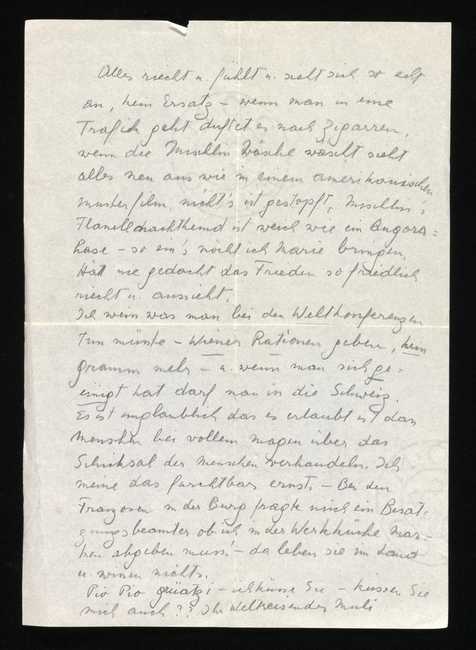 Alles riecht u. fühlt u. sieht sich so echt
an, kein Ersatz – wenn man in eine
Trafik geht duftet es nach Zigarren,
wenn die Wäsche wäscht sieht
alles neu aus wie in einem amerikanischen
musterfilm, nicht's ist gestopft,
Flanellnachthemd ist weich wie ein Angora=
hase – so ein's möcht ich Marie bringen.
Hätt nie gedacht das Frieden so friedlich
riecht u. aussieht.
Ich weiss was man bei den Weltkonferenzen
tun müsste – wiener Rationen geben, kein
gramm mehr – u wenn man sich ge=
einigt hat darf man in die Schweiz.
Es ist unglaublich das es erlaubt ist das
Menschen bei vollem magen über das
Schicksal der Menschen verhandeln. Ich
meine das furchtbar ernst – Bei den
Franzosen in der Burg fragte mich ein Besat=
zungsbeamter ob ich in der Werkküche mar=
ken abgeben muss! – da leben sie im Land
u. wissen nichts.
Pio Pio – ich küsse Sie – küssen Sie
mich auch?? Ihr Weltreisender